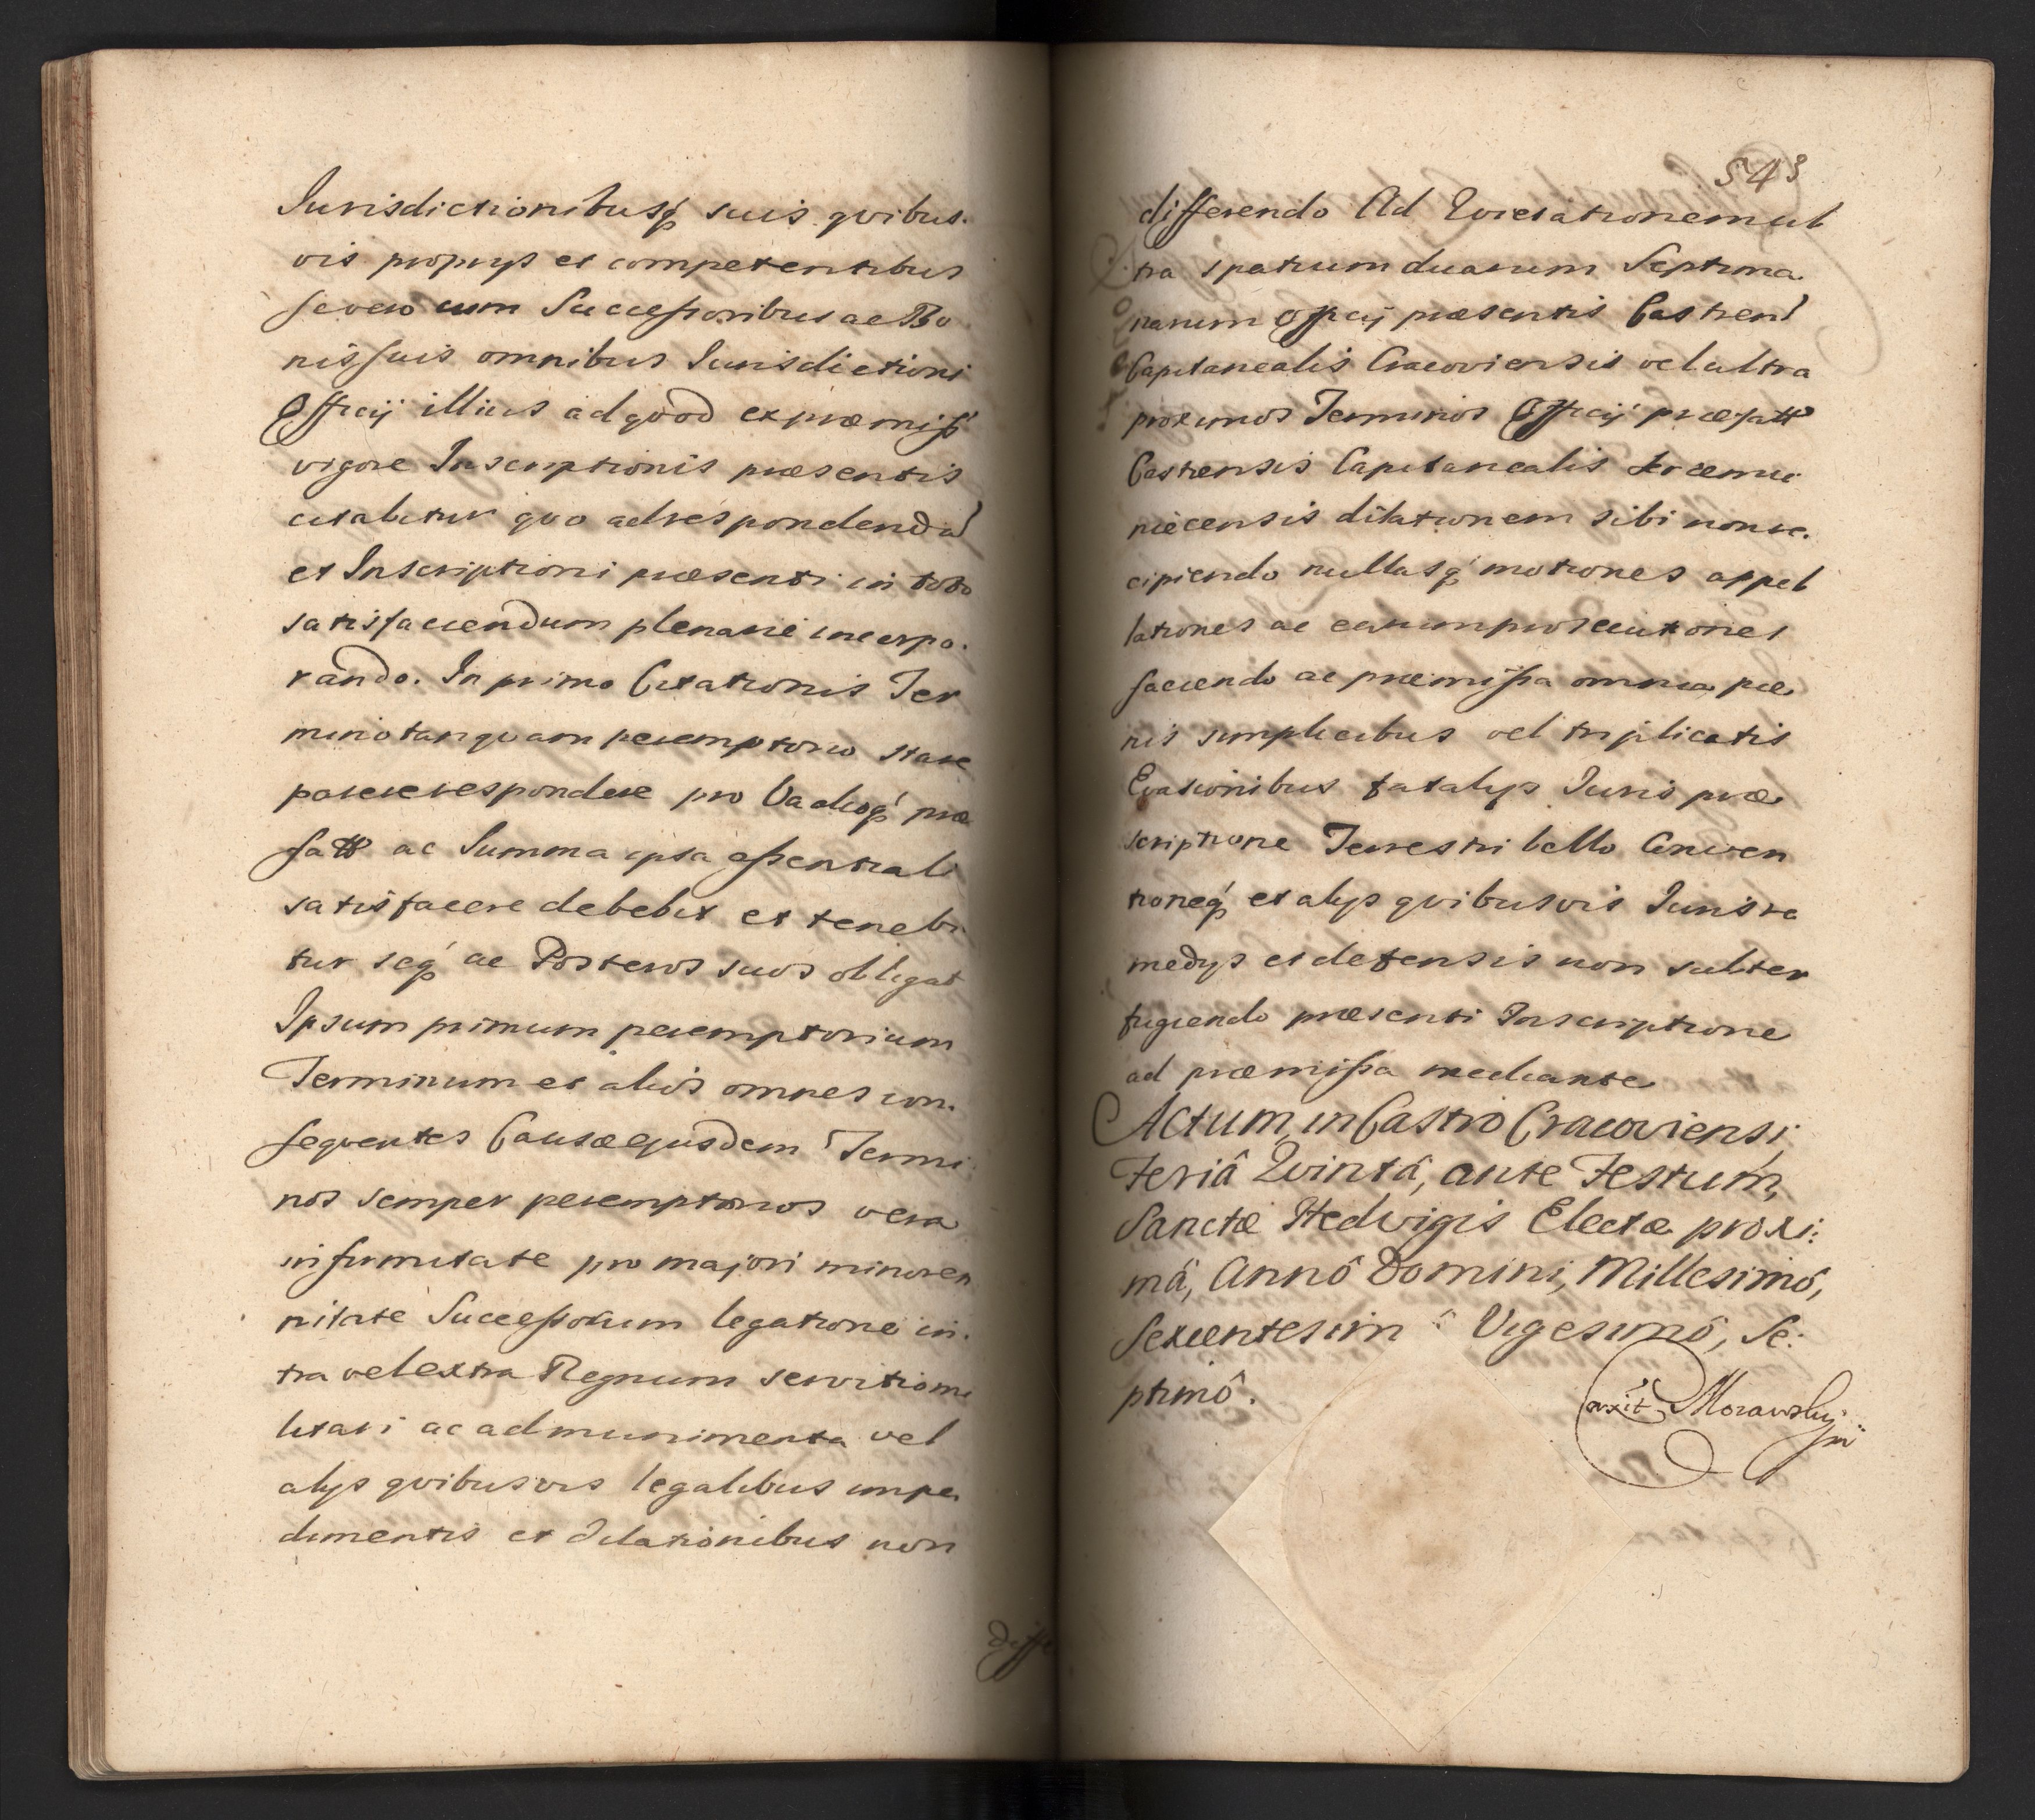 Iurisdictionibusq́ suis qvibus.
vis proprys et competentibus
se vero cum Successoribus ac Bo
nis suis omnibus Iurisdictioni
Officij illius ad qvod ex præmiss
vigore Inscriptionis præsentis
citabitur qvo ad respondendū
et Inscriptioni præsenti in toto
satisfaciendum plenarie incorpo.
rando. In primo Citationis Ter
mino tanqvam peremptorio stare
parere respondere pro Vadioq́ præ
fatto ac Summa ipsa essentiali
satisfacere debebit et tenebi
tur seq́ ac Posteros suos obligat
Ipsum primum peremptorium
Terminum et alios omnes con.
seqventes Causæ ejusdem Termi
nos semper peremptorios vera
infirmitate pro majori minoren
nitate Successorum legatione in.
tra vel extra Regnum servitio mi
litari ac ad munimenta vel
alys qvibusvis legalibus impe
dimentis et dilationibus non
diffe
543
differendo Ad Qvietationem ul
tra spatium duarum Septima
narum Officij præsentis Castren
Capitanealis Cracoviensis vel ultra
proximos Terminos Officij præfatt
Castrensis Capitanealis Krzemie
niecensis dilationem sibi non re.
cipiendo nullasq́ motiones appel
lationes ac earum prosecutiones
faciendo ac præmissa omnia pæ
nis simplicibus vel triplicatis
Evasionibus fatalys Iuris præ
scriptione Terrestri bello Conven
tioneq́ et alys qvibusvis Iuris re
medys et defensis non subter
fugiendo præsenti Inscriptione
ad præmissa mediante
Actum in Castro Cracoviensi,
Feriâ Qvintâ, ante Festum,
Sanctæ Hedvigis Electæ proxi:
mâ, Annô Domini, Millesimô,
Sexcentesimô Vigesimô, Se:
ptimô.
Morawsky